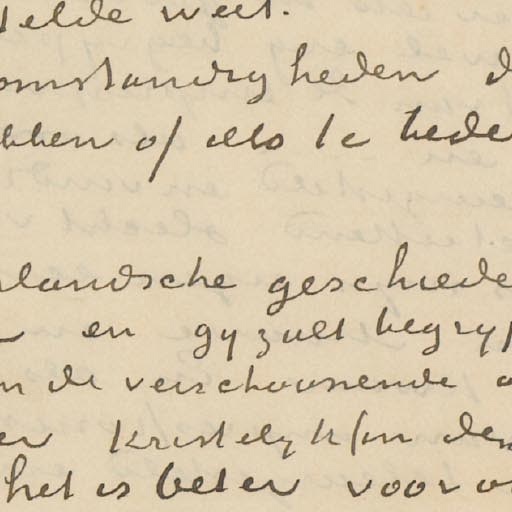 telde weet.
omstandigheden d
bben of iets te bede
landsche geschiede
en gy zult begryp
n de verschoonende o
er kristelyk (in den
het is beter voor o